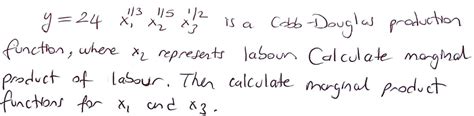 y = 24 x₁^1/3 x₂^1/5 x₃^1/2 is a Cobb-Douglas production
function, where x₂ represents labour Calculate marginal
product of labour. Then calculate marginal product
functions for x₁ and x₃.